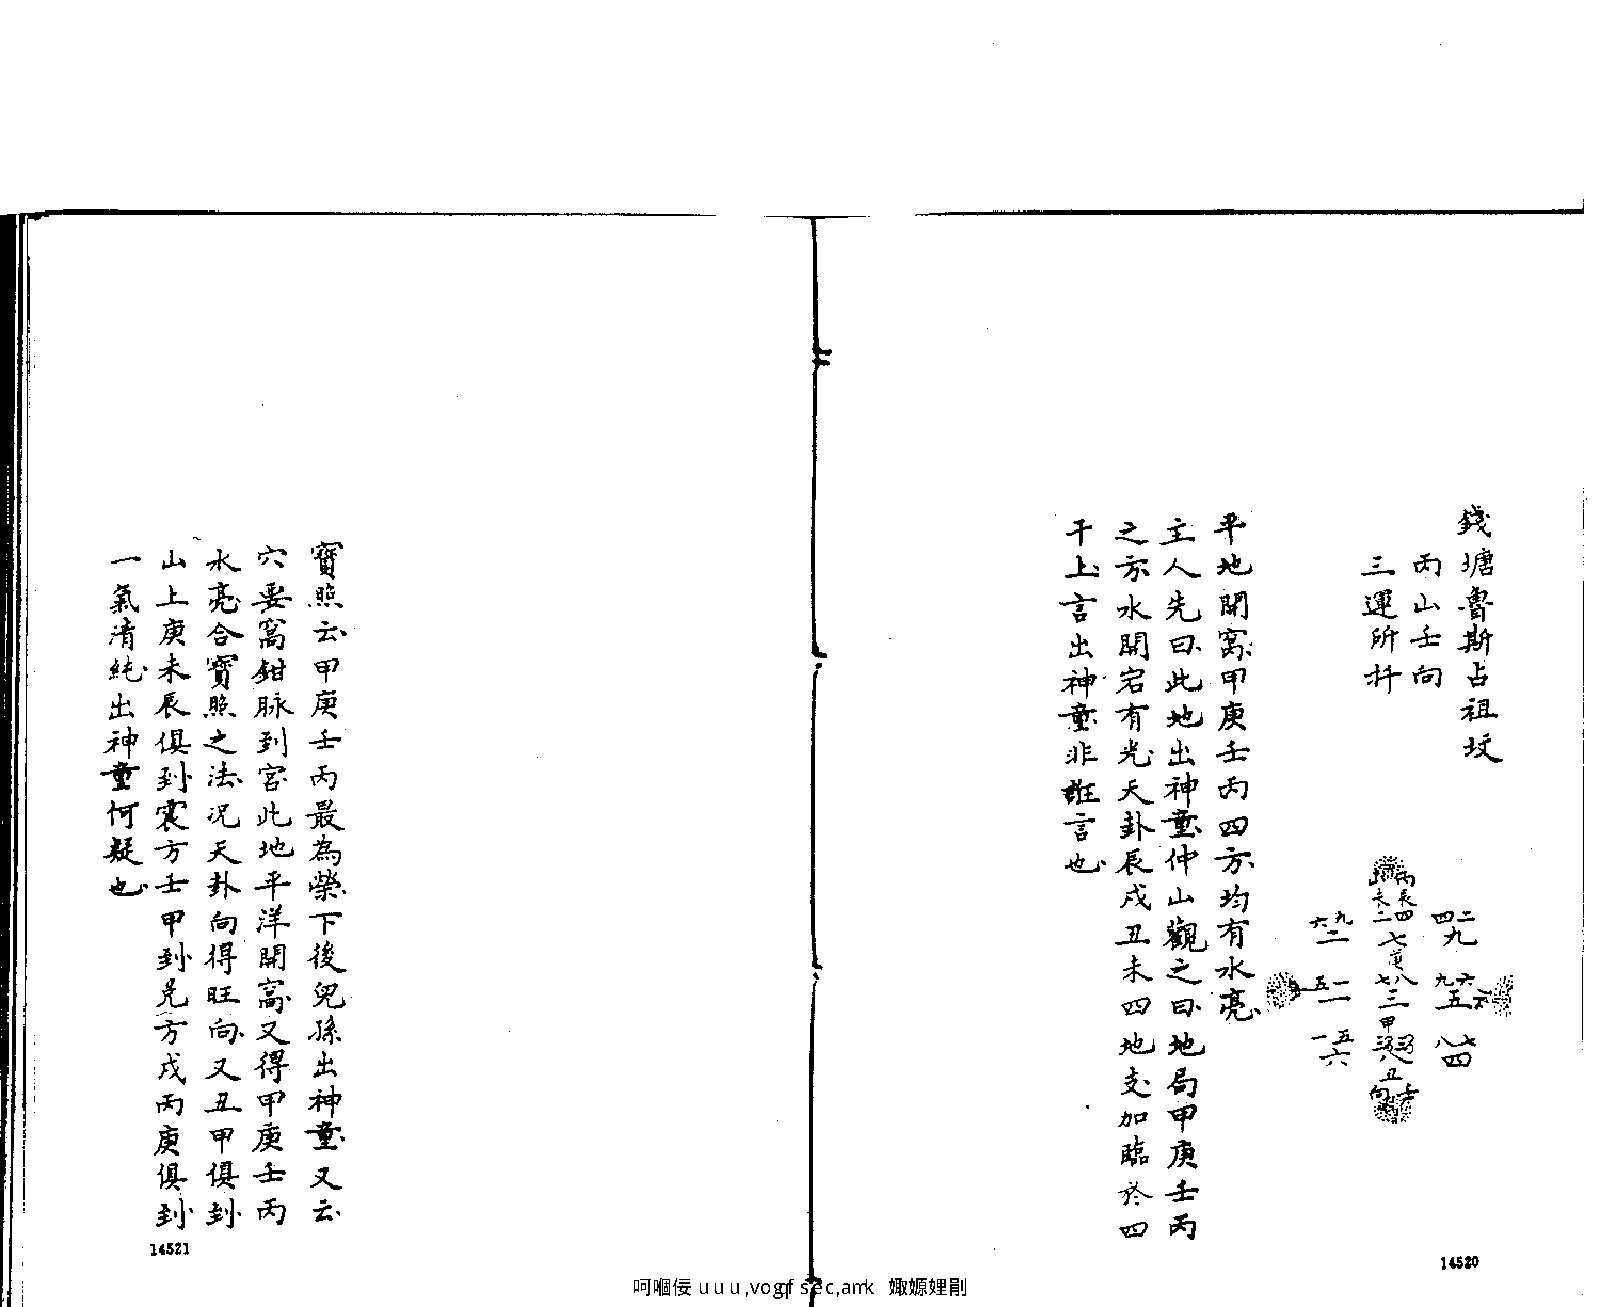 錢塘魯斯占祖坟
丙山壬向
三運所扦
丙
辰 未
四 二
七
庚
二 四
九
九 六
二
八 七
三
六 九
五
一 五
一
甲
七 八
四
八
五 一
六
丑
壬
向
平地開窩甲庚壬丙四方均有水亮
主人先曰此地出神童仲山觀之曰地局甲庚壬丙
之方水開宕有光天卦辰戌丑未四地支加臨於四
干上言出神童非誑言也
14520
寶照云甲庚壬丙最為榮下後兒孫出神童又云
穴要窩鉗脉到宮此地平洋開窩又得甲庚壬丙
水亮合寶照之法况天卦向得旺向又丑甲俱到
山上庚未辰俱到震方壬甲到兌方戌丙庚俱到
一氣清純出神童何疑也
14521